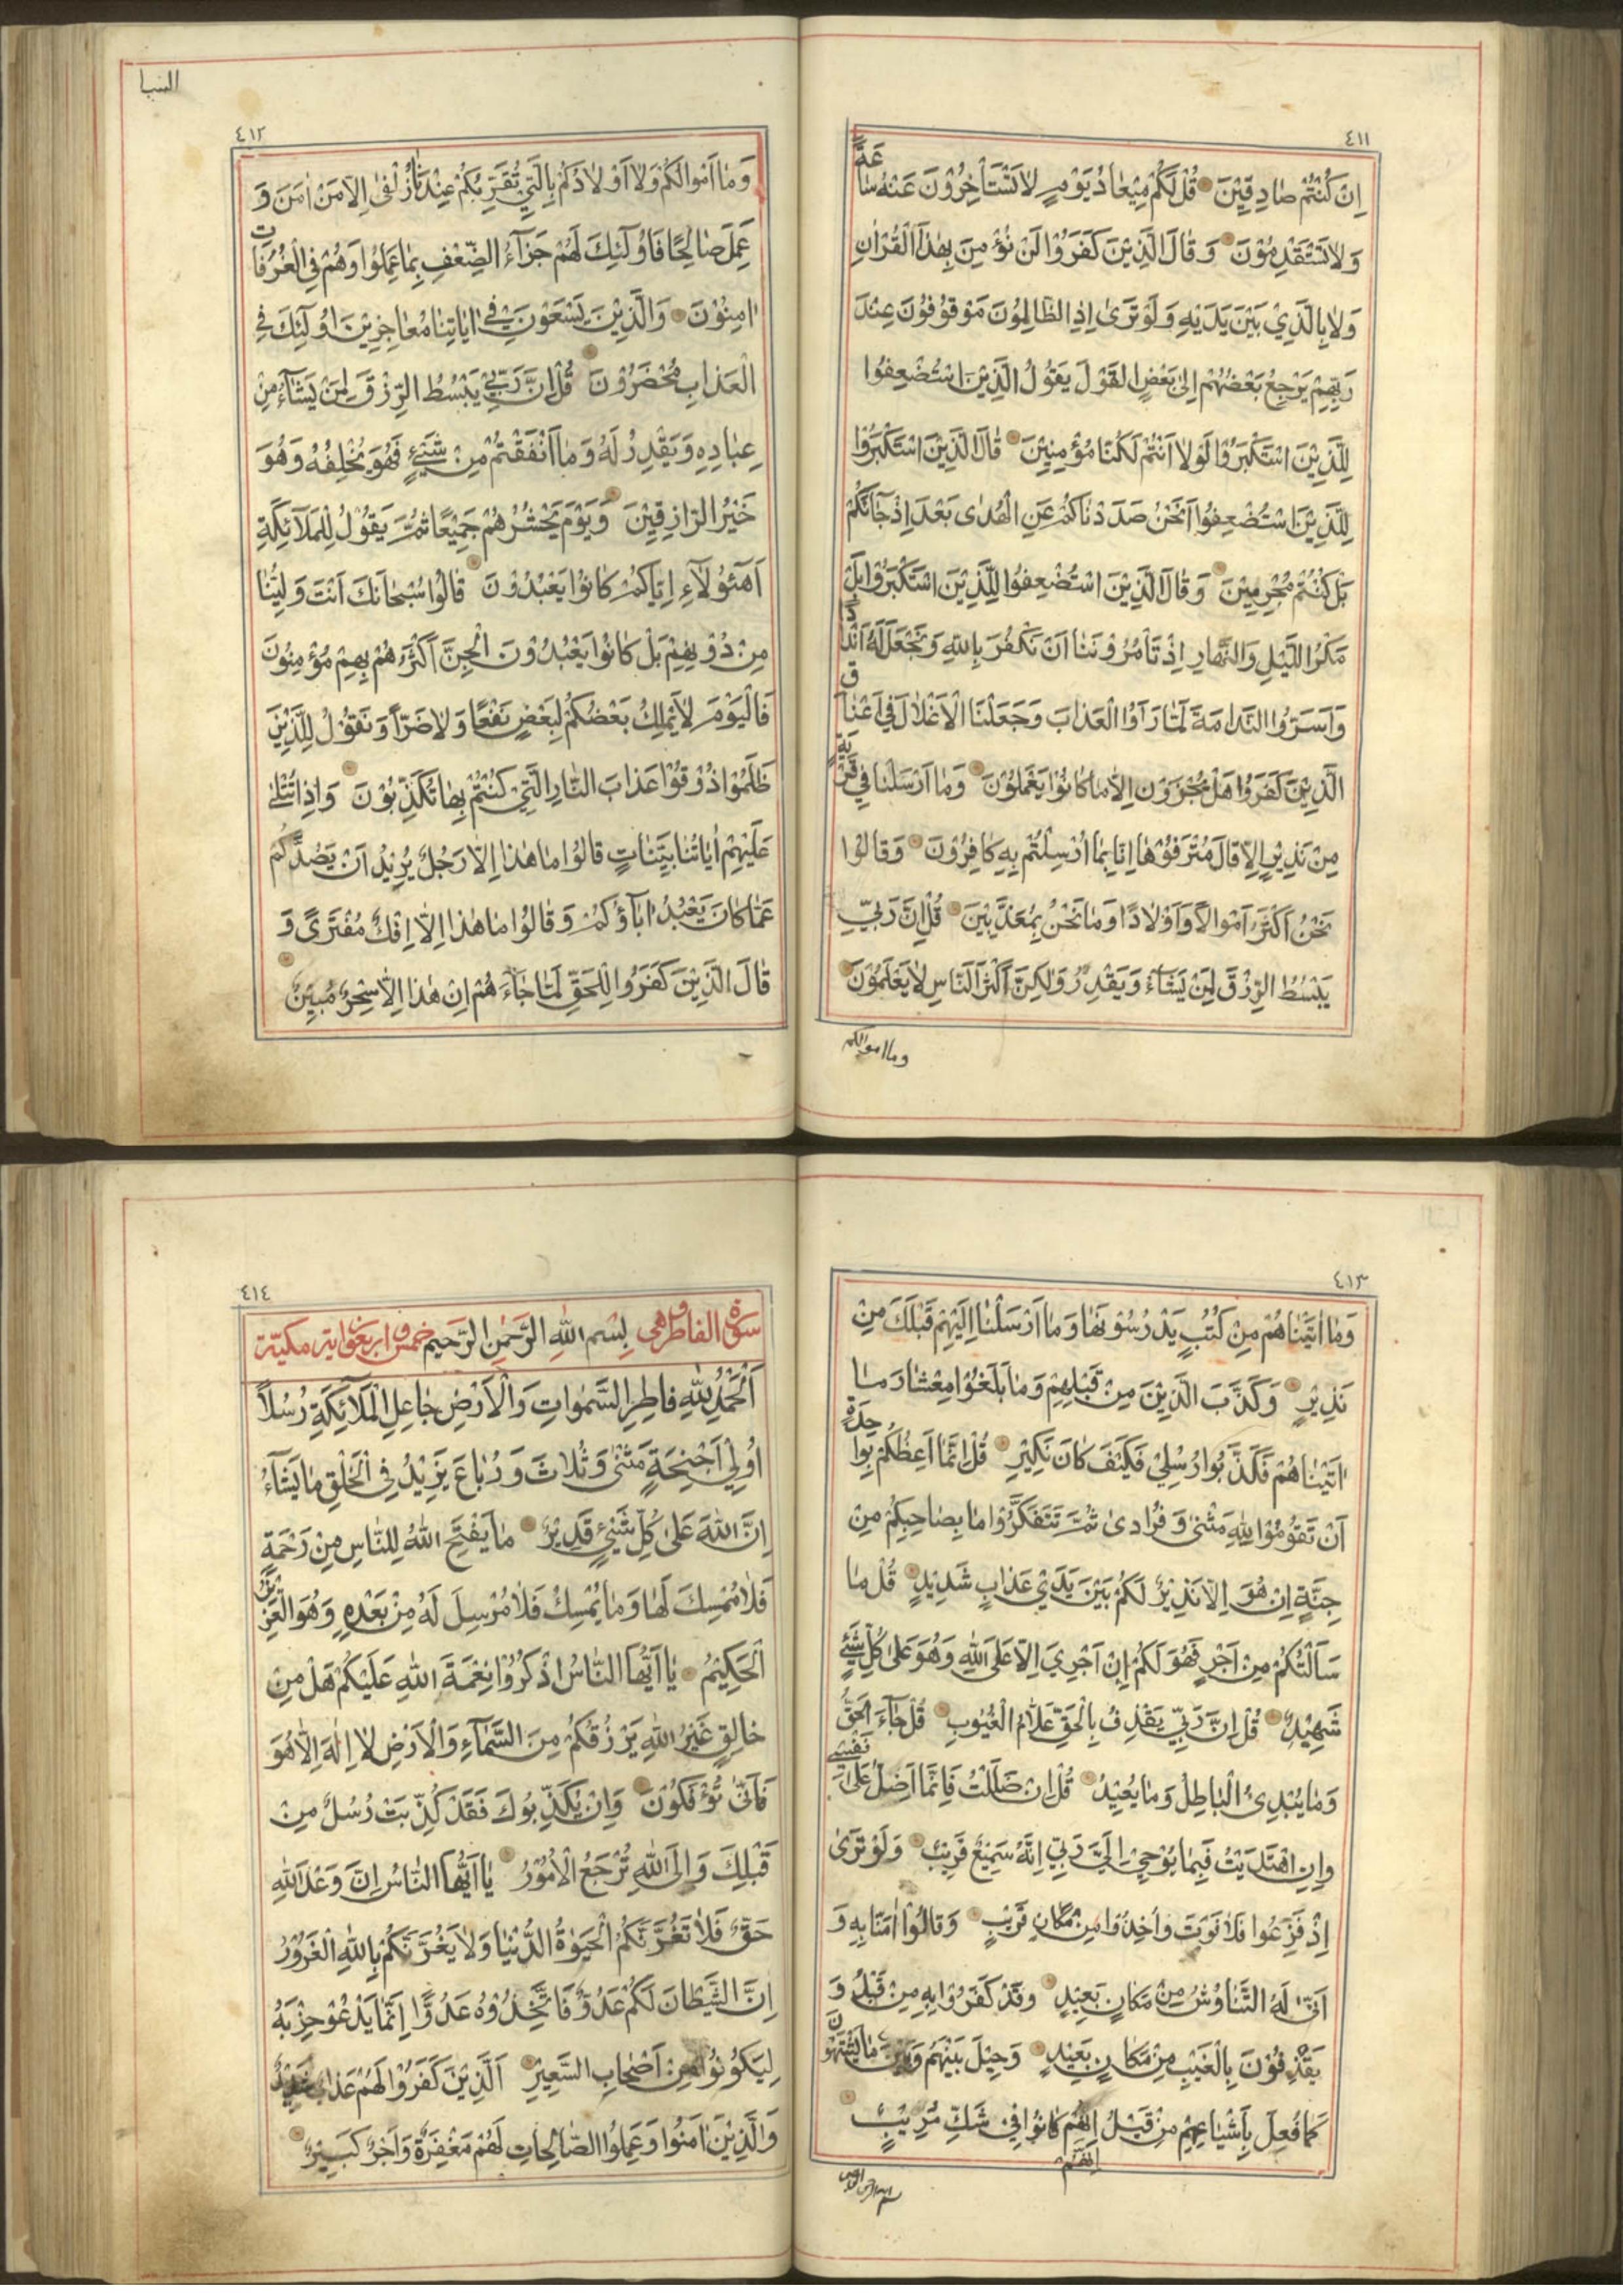 ٤١١
اِنْ كُنْتُمْ صَادِقِيْنَ قُلْ لَكُمْ مِيْعَادُ يَوْمٍ لَا تَسْتَأْخِرُوْنَ عَنْهُ سَاعَةً
وَلَا تَسْتَقْدِمُوْنَ وَقَالَ الَّذِيْنَ كَفَرُوْا لَنْ نُؤْمِنَ بِهٰذَا الْقُرْاٰنِ
وَلَا بِالَّذِيْ بَيْنَ يَدَيْهِ وَلَوْ تَرٰى اِذِ الظَّالِمُوْنَ مَوْقُوْفُوْنَ عِنْدَ
رَبِّهِمْ يَرْجِعُ بَعْضُهُمْ اِلٰى بَعْضٍ الْقَوْلَ يَقُوْلُ الَّذِيْنَ اسْتُضْعِفُوا
لِلَّذِيْنَ اسْتَكْبَرُوْا لَوْلَا اَنْتُمْ لَكُنَّا مُؤْمِنِيْنَ قَالَ الَّذِيْنَ اسْتَكْبَرُوْا
لِلَّذِيْنَ اسْتُضْعِفُوا اَنَحْنُ صَدَدْنَاكُمْ عَنِ الْهُدٰى بَعْدَ اِذْ جَائَكُمْ
بَلْ كُنْتُمْ مُجْرِمِيْنَ وَقَالَ الَّذِيْنَ اسْتُضْعِفُوا لِلَّذِيْنَ اسْتَكْبَرُوْا بَلْ
مَكْرُ اللَّيْلِ وَالنَّهَارِ اِذْ تَأْمُرُوْنَنَا اَنْ نَكْفُرَ بِاللّٰهِ وَنَجْعَلَ لَهُ اَنْدَادًا
وَاَسَرُّوا النَّدَامَةَ لَمَّا رَاَوُا الْعَذَابَ وَجَعَلْنَا الْاَغْلَالَ فِيْ اَعْنَاقِ
الَّذِيْنَ كَفَرُوْا هَلْ يُجْزَوْنَ اِلَّا مَا كَانُوْا يَعْمَلُوْنَ وَمَا اَرْسَلْنَا فِيْ قَرْيَةٍ
مِنْ نَذِيْرٍ اِلَّا قَالَ مُتْرَفُوْهَا اِنَّا بِمَا اُرْسِلْتُمْ بِهِ كَافِرُوْنَ وَقَالُوْا
نَحْنُ اَكْثَرُ اَمْوَالًا وَاَوْلَادًا وَمَا نَحْنُ بِمُعَذَّبِيْنَ قُلْ اِنَّ رَبِّيْ
يَبْسُطُ الرِّزْقَ لِمَنْ يَشَاءُ وَيَقْدِرُ وَلٰكِنَّ اَكْثَرَ النَّاسِ لَا يَعْلَمُوْنَ
وما اموالكم
السبا
٤١٢
وَمَا اَمْوَالُكُمْ وَلَا اَوْلَادُكُمْ بِالَّتِيْ تُقَرِّبُكُمْ عِنْدَنَا زُلْفٰى اِلَّا مَنْ اٰمَنَ وَ
عَمِلَ صَالِحًا فَاُولٰئِكَ لَهُمْ جَزَاءُ الضِّعْفِ بِمَا عَمِلُوْا وَهُمْ فِي الْغُرُفَاتِ
اٰمِنُوْنَ وَالَّذِيْنَ يَسْعَوْنَ فِيْ اٰيَاتِنَا مُعَاجِزِيْنَ اُولٰئِكَ فِي
الْعَذَابِ مُحْضَرُوْنَ قُلْ اِنَّ رَبِّيْ يَبْسُطُ الرِّزْقَ لِمَنْ يَشَاءُ مِنْ
عِبَادِهِ وَيَقْدِرُ لَهُ وَمَا اَنْفَقْتُمْ مِنْ شَيْءٍ فَهُوَ يُخْلِفُهُ وَهُوَ
خَيْرُ الرَّازِقِيْنَ وَيَوْمَ يَحْشُرُهُمْ جَمِيْعًا ثُمَّ يَقُوْلُ لِلْمَلَائِكَةِ
اَهٰؤُلَاءِ اِيَّاكُمْ كَانُوْا يَعْبُدُوْنَ قَالُوْا سُبْحَانَكَ اَنْتَ وَلِيُّنَا
مِنْ دُوْنِهِمْ بَلْ كَانُوْا يَعْبُدُوْنَ الْجِنَّ اَكْثَرُهُمْ بِهِمْ مُؤْمِنُوْنَ
فَالْيَوْمَ لَا يَمْلِكُ بَعْضُكُمْ لِبَعْضٍ نَفْعًا وَلَا ضَرًّا وَنَقُوْلُ لِلَّذِيْنَ
ظَلَمُوْا ذُوْقُوْا عَذَابَ النَّارِ الَّتِيْ كُنْتُمْ بِهَا تُكَذِّبُوْنَ وَاِذَا تُتْلٰى
عَلَيْهِمْ اٰيَاتُنَا بَيِّنَاتٍ قَالُوْا مَا هٰذَا اِلَّا رَجُلٌ يُرِيْدُ اَنْ يَصُدَّكُمْ
عَمَّا كَانَ يَعْبُدُ اٰبَاؤُكُمْ وَقَالُوْا مَا هٰذَا اِلَّا اِفْكٌ مُفْتَرًى وَ
قَالَ الَّذِيْنَ كَفَرُوْا لِلْحَقِّ لَمَّا جَاءَهُمْ اِنْ هٰذَا اِلَّا سِحْرٌ مُبِيْنٌ
٤١٣
وَمَا اٰتَيْنَاهُمْ مِنْ كُتُبٍ يَدْرُسُوْنَهَا وَمَا اَرْسَلْنَا اِلَيْهِمْ قَبْلَكَ مِنْ
نَذِيْرٍ وَكَذَّبَ الَّذِيْنَ مِنْ قَبْلِهِمْ وَمَا بَلَغُوْا مِعْشَارَ مَا
اٰتَيْنَاهُمْ فَكَذَّبُوْا رُسُلِيْ فَكَيْفَ كَانَ نَكِيْرِ قُلْ اِنَّمَا اَعِظُكُمْ بِوَاحِدَةٍ
اَنْ تَقُوْمُوْا لِلّٰهِ مَثْنٰى وَفُرَادٰى ثُمَّ تَتَفَكَّرُوْا مَا بِصَاحِبِكُمْ مِنْ
جِنَّةٍ اِنْ هُوَ اِلَّا نَذِيْرٌ لَكُمْ بَيْنَ يَدَيْ عَذَابٍ شَدِيْدٍ قُلْ مَا
سَاَلْتُكُمْ مِنْ اَجْرٍ فَهُوَ لَكُمْ اِنْ اَجْرِيَ اِلَّا عَلَى اللّٰهِ وَهُوَ عَلٰى كُلِّ شَيْءٍ
شَهِيْدٌ قُلْ اِنَّ رَبِّيْ يَقْذِفُ بِالْحَقِّ عَلَّامُ الْغُيُوْبِ قُلْ جَاءَ الْحَقُّ
وَمَا يُبْدِئُ الْبَاطِلُ وَمَا يُعِيْدُ قُلْ اِنْ ضَلَلْتُ فَاِنَّمَا اَضِلُّ عَلٰى نَفْسِيْ
وَاِنِ اهْتَدَيْتُ فَبِمَا يُوْحِيْ اِلَيَّ رَبِّيْ اِنَّهُ سَمِيْعٌ قَرِيْبٌ وَلَوْ تَرٰى
اِذْ فَزِعُوْا فَلَا فَوْتَ وَاُخِذُوْا مِنْ مَكَانٍ قَرِيْبٍ وَقَالُوْا اٰمَنَّا بِهِ وَ
اَنّٰى لَهُمُ التَّنَاوُشُ مِنْ مَكَانٍ بَعِيْدٍ وَقَدْ كَفَرُوْا بِهِ مِنْ قَبْلُ وَ
يَقْذِفُوْنَ بِالْغَيْبِ مِنْ مَكَانٍ بَعِيْدٍ وَحِيْلَ بَيْنَهُمْ وَبَيْنَ مَا يَشْتَهُوْنَ
كَمَا فُعِلَ بِاَشْيَاعِهِمْ مِنْ قَبْلُ اِنَّهُمْ كَانُوْا فِيْ شَكٍّ مُرِيْبٍ
اِنَّهُمْ
٤١٤
سورة الفاطر وهي بِسْمِ اللّٰهِ الرَّحْمٰنِ الرَّحِيْمِ خمس و اربعون اية مكية
اَلْحَمْدُ لِلّٰهِ فَاطِرِ السَّمٰوَاتِ وَالْاَرْضِ جَاعِلِ الْمَلَائِكَةِ رُسُلًا
اُولِيْ اَجْنِحَةٍ مَثْنٰى وَثُلَاثَ وَرُبَاعَ يَزِيْدُ فِي الْخَلْقِ مَا يَشَاءُ
اِنَّ اللّٰهَ عَلٰى كُلِّ شَيْءٍ قَدِيْرٌ مَا يَفْتَحِ اللّٰهُ لِلنَّاسِ مِنْ رَحْمَةٍ
فَلَا مُمْسِكَ لَهَا وَمَا يُمْسِكْ فَلَا مُرْسِلَ لَهُ مِنْ بَعْدِهِ وَهُوَ الْعَزِيْزُ
الْحَكِيْمُ يَا اَيُّهَا النَّاسُ اذْكُرُوْا نِعْمَةَ اللّٰهِ عَلَيْكُمْ هَلْ مِنْ
خَالِقٍ غَيْرُ اللّٰهِ يَرْزُقُكُمْ مِنَ السَّمَاءِ وَالْاَرْضِ لَا اِلٰهَ اِلَّا هُوَ
فَاَنّٰى تُؤْفَكُوْنَ وَاِنْ يُكَذِّبُوْكَ فَقَدْ كُذِّبَتْ رُسُلٌ مِنْ
قَبْلِكَ وَاِلَى اللّٰهِ تُرْجَعُ الْاُمُوْرُ يَا اَيُّهَا النَّاسُ اِنَّ وَعْدَ اللّٰهِ
حَقٌّ فَلَا تَغُرَّنَّكُمُ الْحَيٰوةُ الدُّنْيَا وَلَا يَغُرَّنَّكُمْ بِاللّٰهِ الْغَرُوْرُ
اِنَّ الشَّيْطَانَ لَكُمْ عَدُوٌّ فَاتَّخِذُوْهُ عَدُوًّا اِنَّمَا يَدْعُوْ حِزْبَهُ
لِيَكُوْنُوْا مِنْ اَصْحَابِ السَّعِيْرِ اَلَّذِيْنَ كَفَرُوْا لَهُمْ عَذَابٌ شَدِيْدٌ
وَالَّذِيْنَ اٰمَنُوْا وَعَمِلُوا الصَّالِحَاتِ لَهُمْ مَغْفِرَةٌ وَاَجْرٌ كَبِيْرٌ